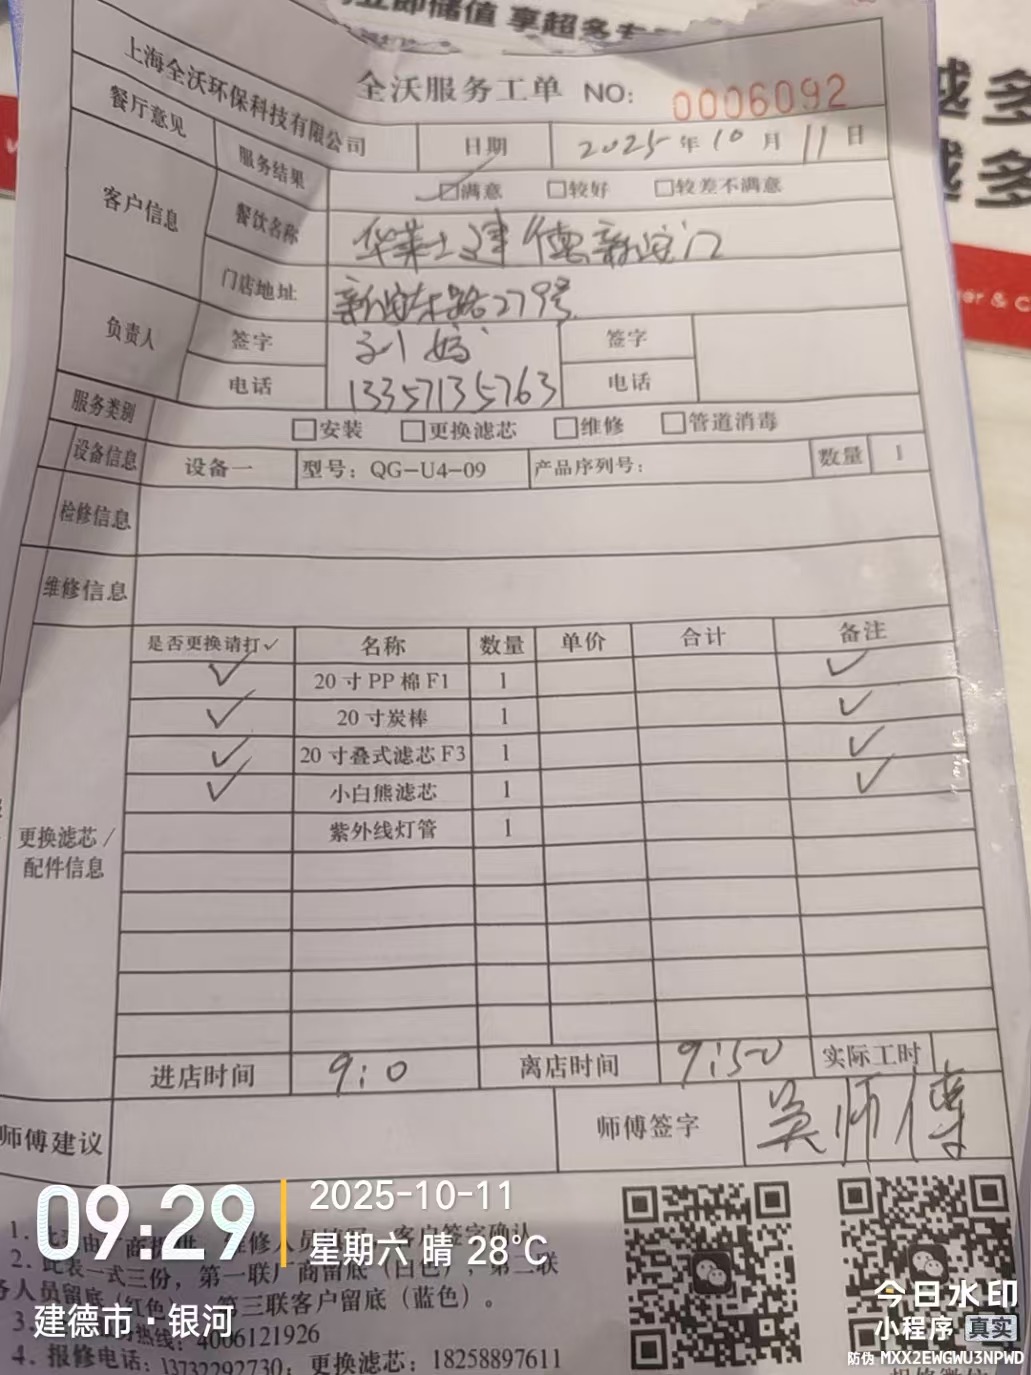 立即储值 享超多专
越多
越多
上海全沃环保科技有限公司
全沃服务工单 NO: 0006092
日期 2025年10月11日
餐厅意见 服务结果 ☑满意 □较好 □较差不满意
客户信息 餐饮名称 华莱士建德新安门
门店地址 新安东路279号
负责人 签字 签字
电话 13357135763 电话
服务类别 □安装 □更换滤芯 □维修 □管道消毒
设备信息 设备一 型号: QG-U4-09 产品序列号: 数量 1
检修信息
维修信息
是否更换请打✓ 名称 数量 单价 合计 备注
✓ 20寸PP棉F1 1 ✓
✓ 20寸炭棒 1 ✓
✓ 20寸叠式滤芯F3 1 ✓
✓ 小白熊滤芯 1 ✓
紫外线灯管 1
更换滤芯/
配件信息
进店时间 9:0 离店时间 9:50 实际工时
师傅建议 师傅签字 吴师傅
客户签字确认
2. 此表一式三份，第一联厂商留底（白色），第二联
务人员留底（红色 第三联客户留底（蓝色）。
3. 热线: 4006121926
4. 报修电话: 13732292730; 更换滤芯: 18258897611
09:29
2025-10-11
星期六 晴 28°C
建德市·银河
今日水印
小程序 真实
防伪 MXX2EWGWU3NPWD